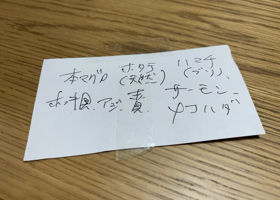 本マグロ ホタテ ハマチ
(天然) (ブリ)、
ホッキ貝、アジ、 サーモン、
メコハダ